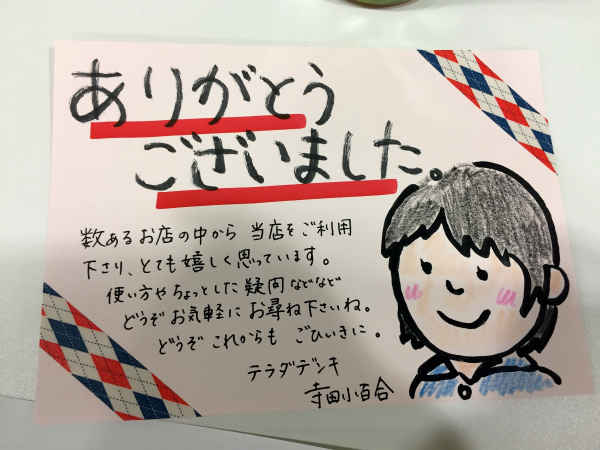 ありがとう
ございました。
数あるお店の中から 当店をご利用
下さり、とても嬉しく思っています。
使い方やちょっとした疑問などなど
どうぞお気軽に お尋ね下さいね。
どうぞ これからも ごひいきに。
テラダデンキ
寺田小百合